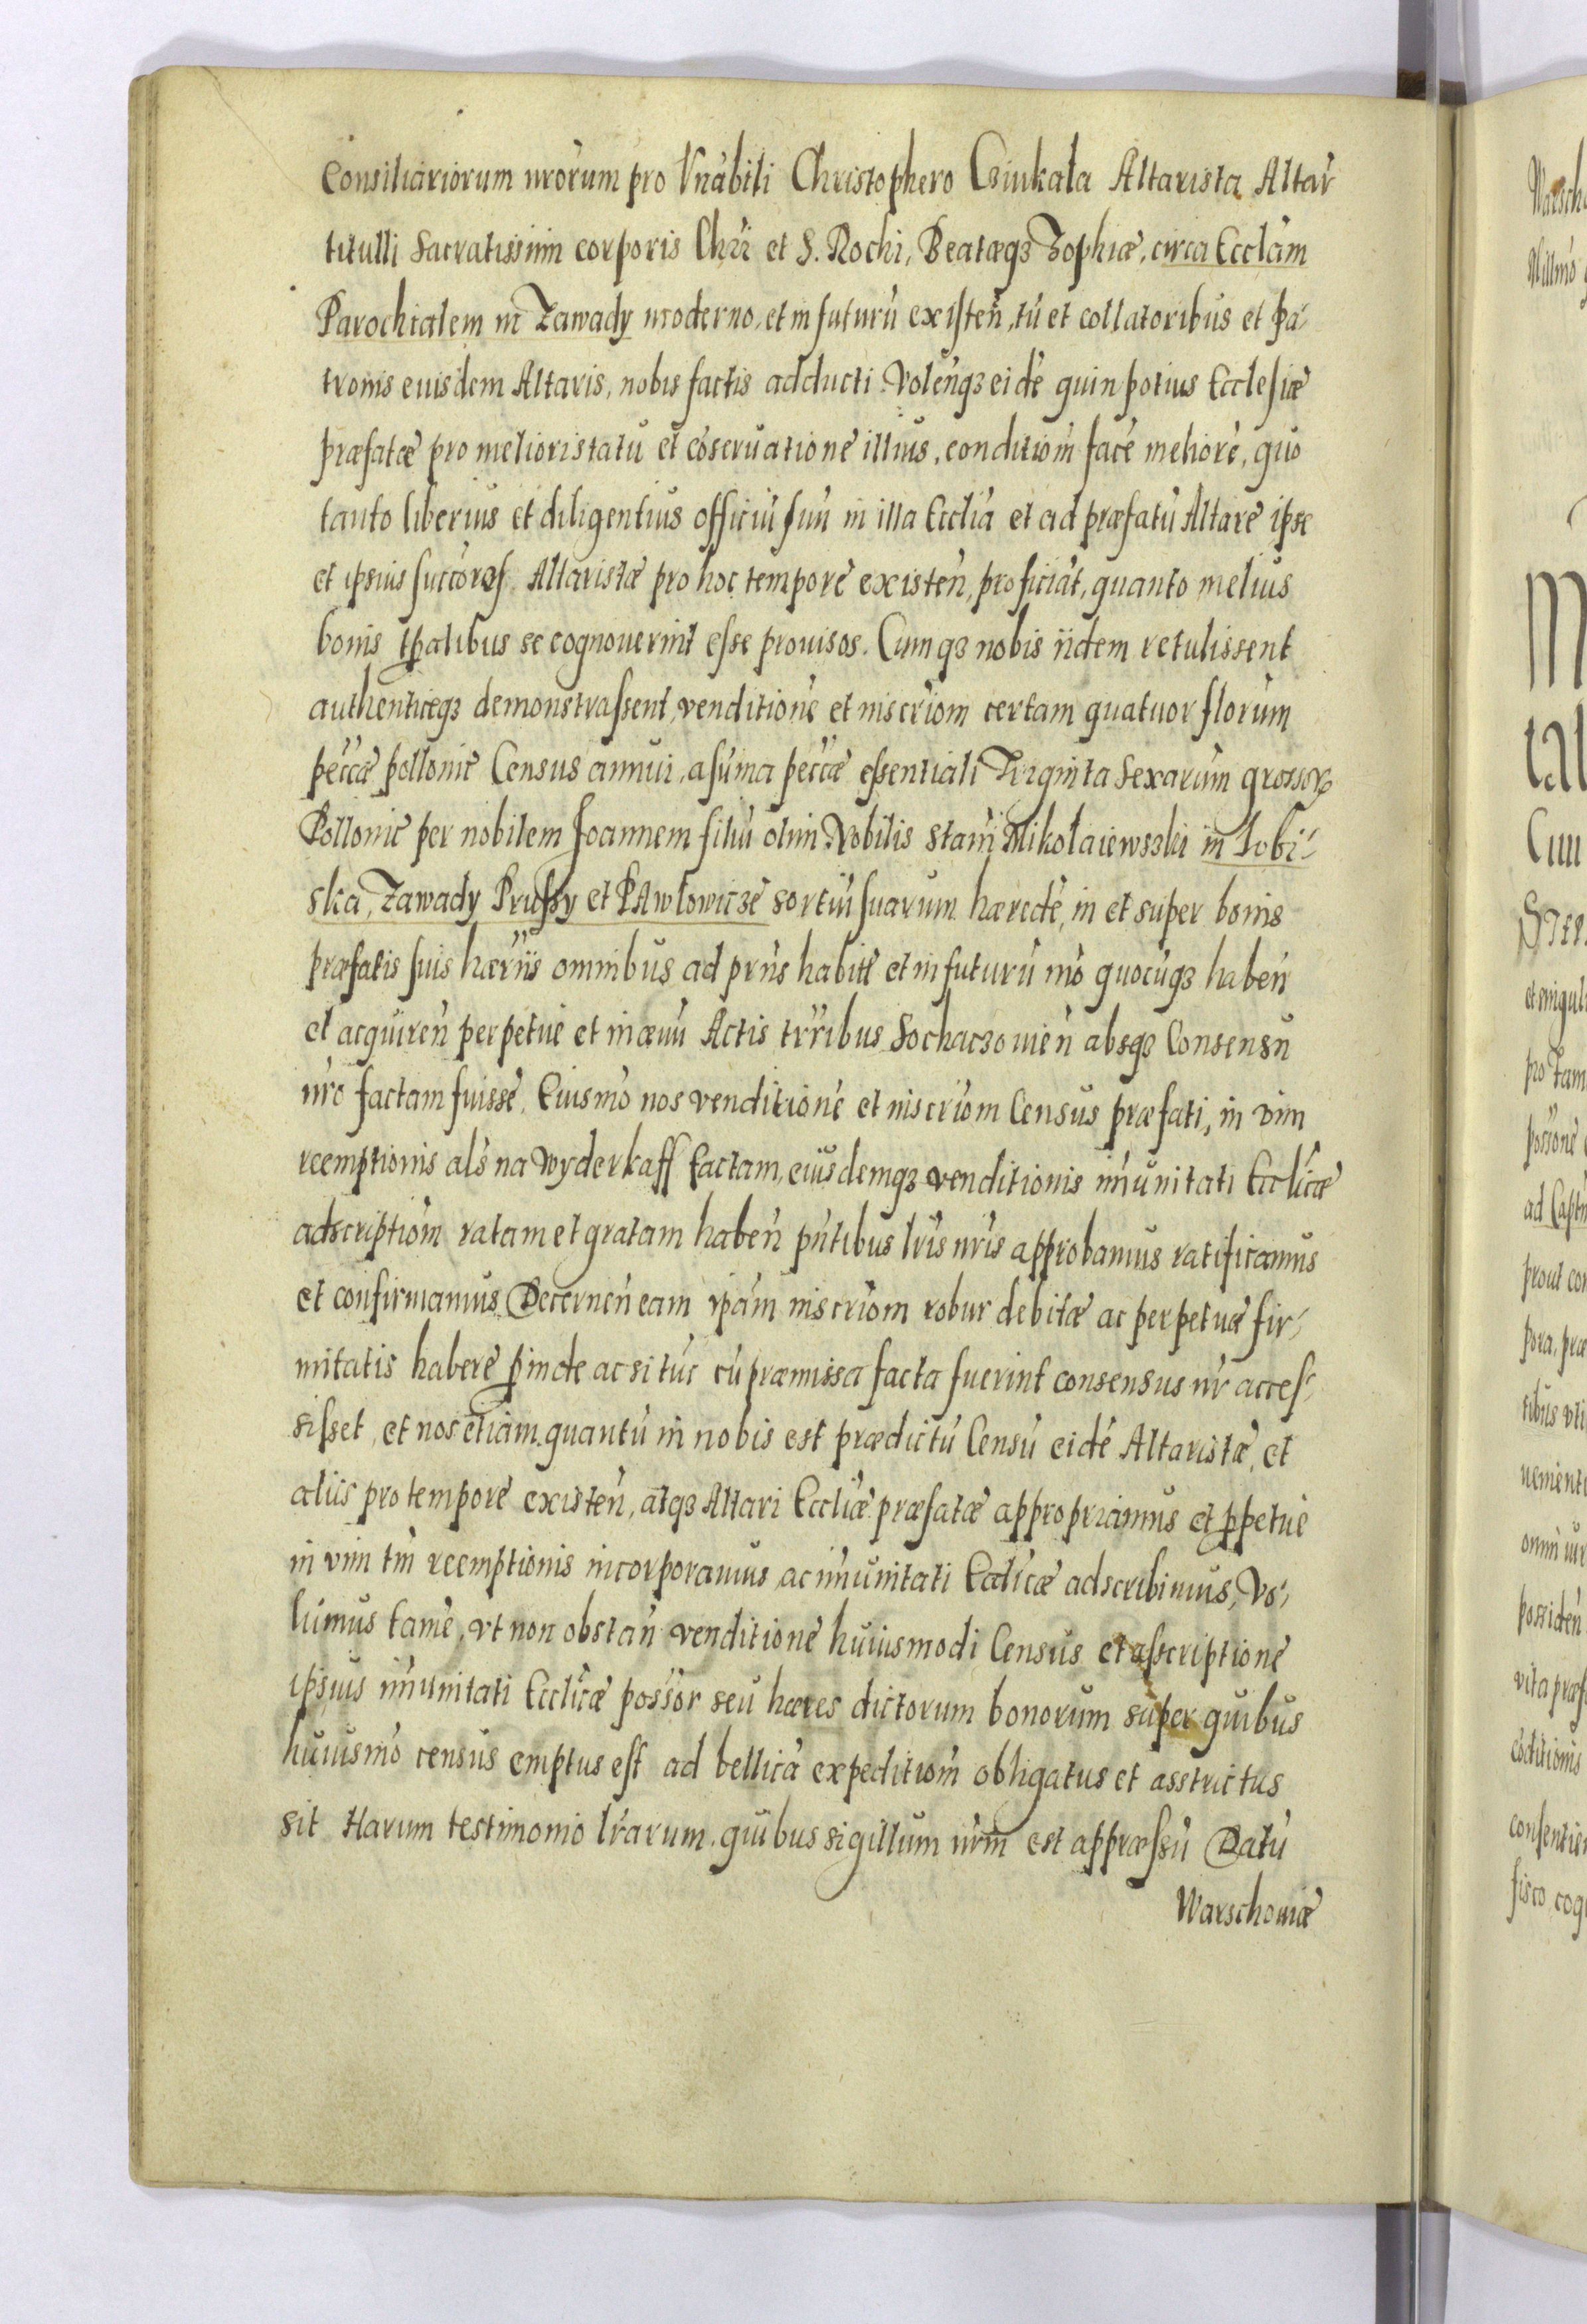 Consiliariorum nrorum pro Vnabili Christophero Cziukala Altarista Altar
titulli Sacratissimi corporis Chri et S. Rochi, Beatæqz Zophiæ, circa Ecclam
Parochialem in Zawady moderno, et in futurũ existeñ, tũ et collatoribus et pa-
tronis eiusdem Altaris, nobis factis adducti Volenqz eidẽ quin potius Ecclesiæ
præfatæ pro melioristatu et cõseruationẽ illius, conditiom facẽ meliorẽ, quo
tanto liberius et diligentius officiũ suũ in illa Ecclia et ad præfatũ Altare ipse
et ipsius succores Altaristæ pro hoc tempore existeñ, proficiãt, quanto melius
bonis tpalibus se cognouerint esse prouisos. Cumqz nobis iidem retulissent
authenticeqz demonstrassent, venditionẽ et inscriom certam quatuor florum
peccæ pollonic Census annui, a sũma peccæ essentiali Triginta Sexarum grossorꝝ
Pollonic per nobilem Joannem filiũ olim Nobilis Stani Mikolaiewszki in Lobi-
ska, Zawady Prussy et PAwlowicze sortiũ suarum hæredẽ, in et super bonis
præfatis suis hæriis omnibus ad prñs habitẽ et in futurũ mõ quocũqz habeñ
et acquireñ perpetuẽ et in æuũ Actis trribus Sochaczouieñ absqz Consensu
nro factam fuisse. Eiusmõ nos venditionẽ et inscriom Census præfati, in vim
reemptionis als na wyderkaff factam, eiusdemqz venditionis im̃unitati Ecclicæ
adscriptiom ratam et gratam habeñ pñtibus lris nris approbamus ratificamus
et confirmamus Decerneñ eam ipam inscriom robur debitæ ac perpetuæ fir-
mitatis habere pinde ac si tũc cũ præmissa facta fuerint consensus nr acces-
sisset, et nos etiam quantũ in nobis est prædictũ Censũ eidẽ Altaristæ, et
aliis pro tempore existeñ, atqz Altari Eccliæ præfatæ appropriamus et ppetuẽ
in vim tm̃ reemptionis incorporamus ac im̃unitati Ecclicæ adscribimus, Vo-
lumus tamẽ, vt non obstañ venditionẽ huiusmodi Census et asscriptionẽ
ipsius im̃unitati Ecclicæ possor seu hæres dictorum bonorum super quibus
huiusmõ census emptus est ad bellicã expeditiom obligatus et asstrictus
sit Harum testimonio lrarum, quibus sigillum nrm est appræssũ Datũ
Warschouiæ